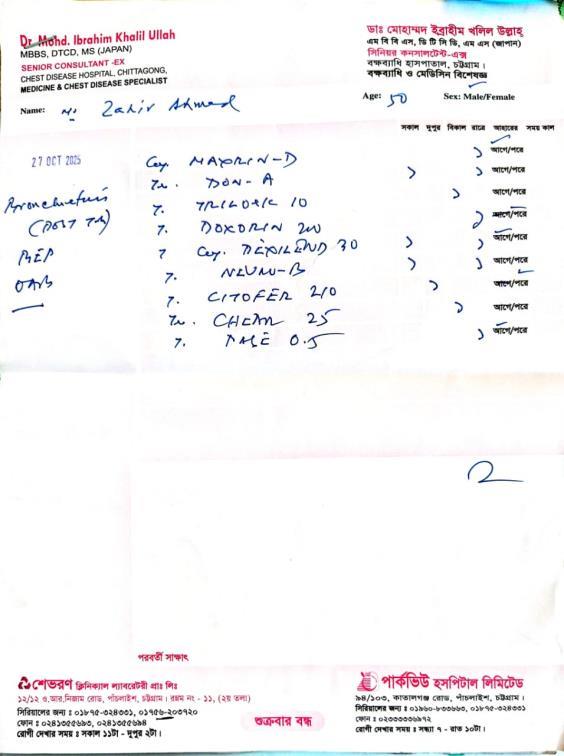 Dr. Mohd. Ibrahim Khalil Ullah
MBBS, DTCD, MS (JAPAN)
SENIOR CONSULTANT -EX
CHEST DISEASE HOSPITAL, CHITTAGONG,
MEDICINE & CHEST DISEASE SPECIALIST
ডাঃ মোহাম্মদ ইব্রাহীম খলিল উল্লাহ্
এম বি বি এস, ডি টি সি ডি, এম এস (জাপান)
সিনিয়র কনসালটেন্ট-এক্স
বক্ষব্যাধি হাসপাতাল, চট্টগ্রাম।
বক্ষব্যাধি ও মেডিসিন বিশেষজ্ঞ
Name: Zahir Ahmed Age: 50 Sex: Male/Female
সকাল দুপুর বিকাল রাত্রে আহারের সময় কাল
27 OCT 2025
(POST TB)
BEP
Cap. MAXRIN-D আগে/পরে
DON-A আগে/পরে
T. TRILOCK 10 আগে/পরে
T. DOXORIN 200 আগে/পরে
Cap. DEXILEND 30 আগে/পরে
T. NEURO-B আগে/পরে
T. CITOFER 210 আগে/পরে
25 আগে/পরে
T. PASE 0.5 আগে/পরে
2
পরবর্তী সাক্ষাৎ
শেভরণ ক্লিনিক্যাল ল্যাবরেটরী প্রাঃ লিঃ
১২/১২ ও.আর.নিজাম রোড, পাঁচলাইশ, চট্টগ্রাম। রুম নং - ১১, (২য় তলা)
সিরিয়ালের জন্য : ০১৮৭৫-৩২৪৩৩১, ০১৭৫৬-২০৩৭২০
ফোন : ০২৪১৩৫৫৬৯৩, ০২৪১৩৫৫৬৯৪
রোগী দেখার সময় : সকাল ১১টা - দুপুর ২টা।
শুক্রবার বন্ধ
পার্কভিউ হসপিটাল লিমিটেড
৯৪/১০৩, কাতালগঞ্জ রোড, পাঁচলাইশ, চট্টগ্রাম।
সিরিয়ালের জন্য : ০১৯৬০-৮৩৩৬৬০, ০১৮৭৫-৩২৪৩৩১
ফোন : ০২৩৩৩৩৩৬৯৭২
রোগী দেখার সময় : সন্ধ্যা ৭ - রাত ১০টা।